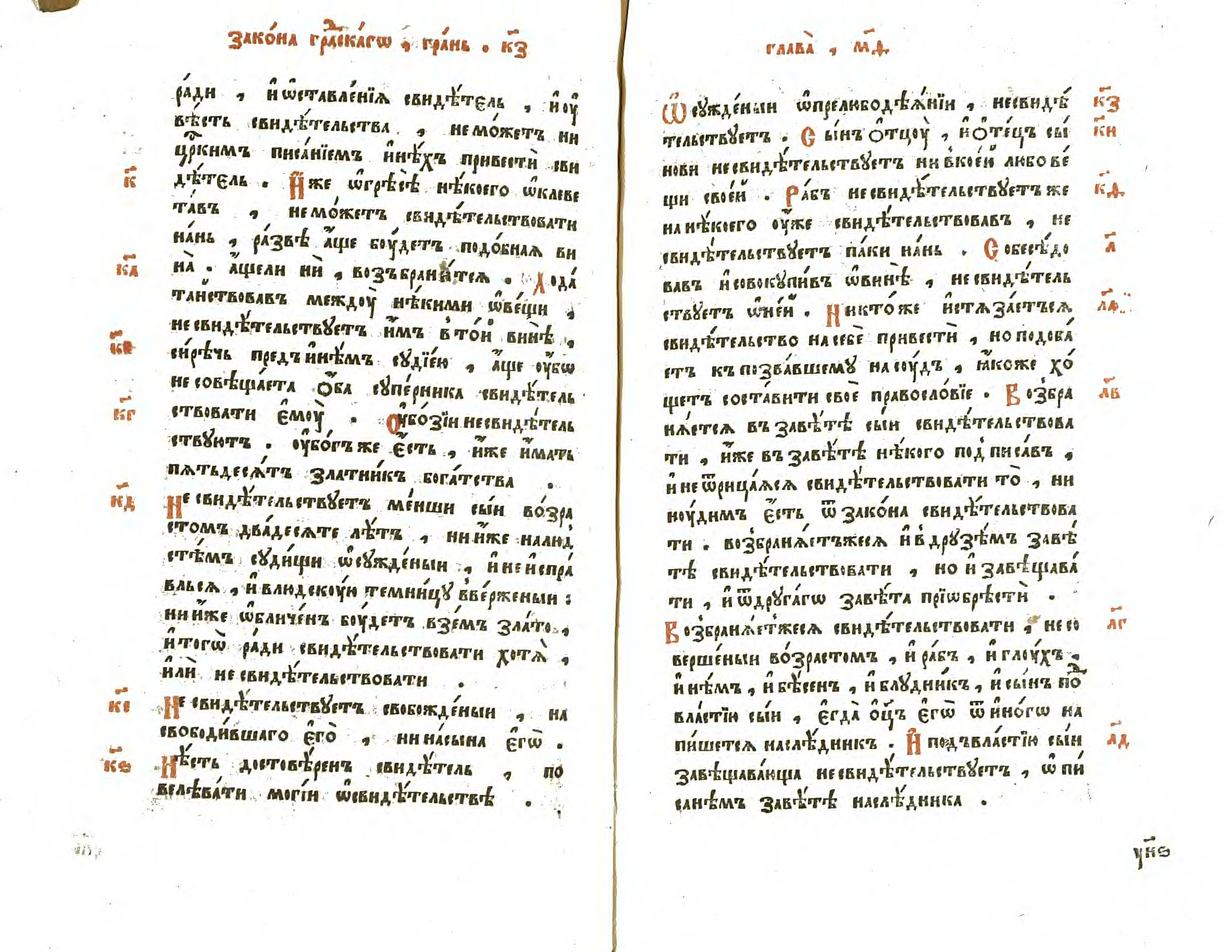 Зако́на гра́дскагѡ , гра́нь . к҃з
ра́ди , и҆ ѡ҆ставле́нїѧ свидѣ́тель , и҆ ᲂу҆
вѣ́сть свидѣ́тельства , не мо́жетъ ни
цр҃кимъ писа́нїемъ и҆нѣ́хъ привестѝ сви
к҃ дѣ́тель . И҆́же ѡ҆ грѣсѣ̀ нѣ́коего ѡ҆клеве
та́въ , не мо́жетъ свидѣ́тельствовати
на́нь , ра́звѣ а҆́ще бꙋ́детъ подо́бная ви
к҃а на̀ . а҆́щели нѝ , возъбрани́тсѧ . Хода́
та́йствовавъ междꙋ̀ нѣ́кими ѡ҆ве́щи ,
не свидѣ́тельствꙋетъ и҆́мъ в то́й винѣ̀ ,
к҃в си́рѣчь предъ и҆нѣ́мъ сꙋдїе́ю , а҆́ще ᲂу҆́бѡ
не совѣща́ета ѻ҆́ба сꙋпе́рника свидѣ́тель
к҃г ствовати є҆мꙋ̀ . Оу҆бо́зїи не свидѣ́тель
ствꙋютъ . ᲂу҆бо́гъ же є҆́сть , и҆́же и҆́мать
пѧтьдесѧ́тъ злати́къ бога́тства .
к҃д Не свидѣ́тельствꙋетъ ме́нши сы́и во́зра
стомъ два́десѧте лѣ́тъ , ни и҆́же на люд
стѣ́мъ сꙋди́щи ѡ҆сꙋжде́ныи , и҆ не и҆спра́
влься , и҆ в людскꙋ́ю темни́цꙋ вве́рженыи :
ни и҆́же ѡ҆бличе́нъ бꙋ́детъ взе́мъ зла́то ,
и҆ тогѡ̀ ра́ди свидѣ́тельствовати хотѧ̀ ,
и҆лѝ не свидѣ́тельствовати .
к҃е Не свидѣ́тельствꙋетъ свобожде́ныи , на
свободи́вшаго є҆го̀ , ни на сы́на є҆гѡ̀ .
к҃ѕ Нѣ́сть достовѣ́ренъ свидѣ́тель , по
велѣва́ти моги́и ѡ҆ свидѣ́тельствѣ .
глава̀ , м҃д
Ѡ҆сꙋжде́ныи ѡ҆ прелюбодѣѧ́нїи , не свидѣ́ к҃з
тельствꙋетъ . Сы́нъ ѻ҆тцꙋ̀ , и҆ ѻ҆те́цъ сы́ к҃и
нови не свидѣ́тельствꙋетъ ни в ко́еи либо ве́
щи свое́й . Ра́бъ не свидѣ́тельствꙋетъ же к҃ѳ
на нѣ́коего ᲂу҆́же свидѣ́тельствовавъ , не
свидѣ́тельствꙋетъ па́ки на́нь . Собесѣ́до л҃
вавъ и҆ совокꙋпи́въ ѡ҆ винѣ̀ , не свидѣ́тель
ствꙋетъ ѡ҆ не́й . Никто́же и҆стѧза́етъсѧ л҃а
свидѣ́тельство на себѐ привестѝ , но подоба́
етъ къ позва́вшемꙋ на сꙋ́дъ , ꙗ҆́коже хо́
щетъ соста́вити своѐ правосло́вїе . Возбра л҃в
нѧ́ется въ завѣ́тѣ сы́и свидѣ́тельствова
ти , и҆́же въ завѣ́тѣ нѣ́кого подписа́въ ,
и҆ не ѿрица́яся свидѣ́тельствовати то̀ , ни
нꙋ́димъ є҆́сть ѿ зако́на свидѣ́тельствова
ти . возбранѧ́етъжесѧ и҆ в дрꙋзѣ́мъ завѣ́
тѣ свидѣ́тельствовати , но и҆ завѣщава́
ти , и҆ ѿ дрꙋга́гѡ завѣ́та прїѡбрѣ́сти .
Возбранѧ́етжесѧ свидѣ́тельствовати , несо л҃г
верше́ныи во́зрастомъ , и҆ ра́бъ , и҆ глꙋ́хъ ,
и҆ нѣ́мъ , и҆ бѣ́сенъ , и҆ блꙋдни́къ , и҆ сы́нъ под
вла́стїю сы́и , є҆гда̀ ѻ҆ц҃ъ є҆гѡ̀ ѿ и҆но́гѡ на
пи́шется наслѣ́дникъ . И҆ подъ вла́стїю сы́и л҃д
завѣщава́юща не свидѣ́тельствꙋетъ , ѡ҆ пи
са́нѣмъ завѣ́тѣ наслѣ́дника .
ук҃ѕ